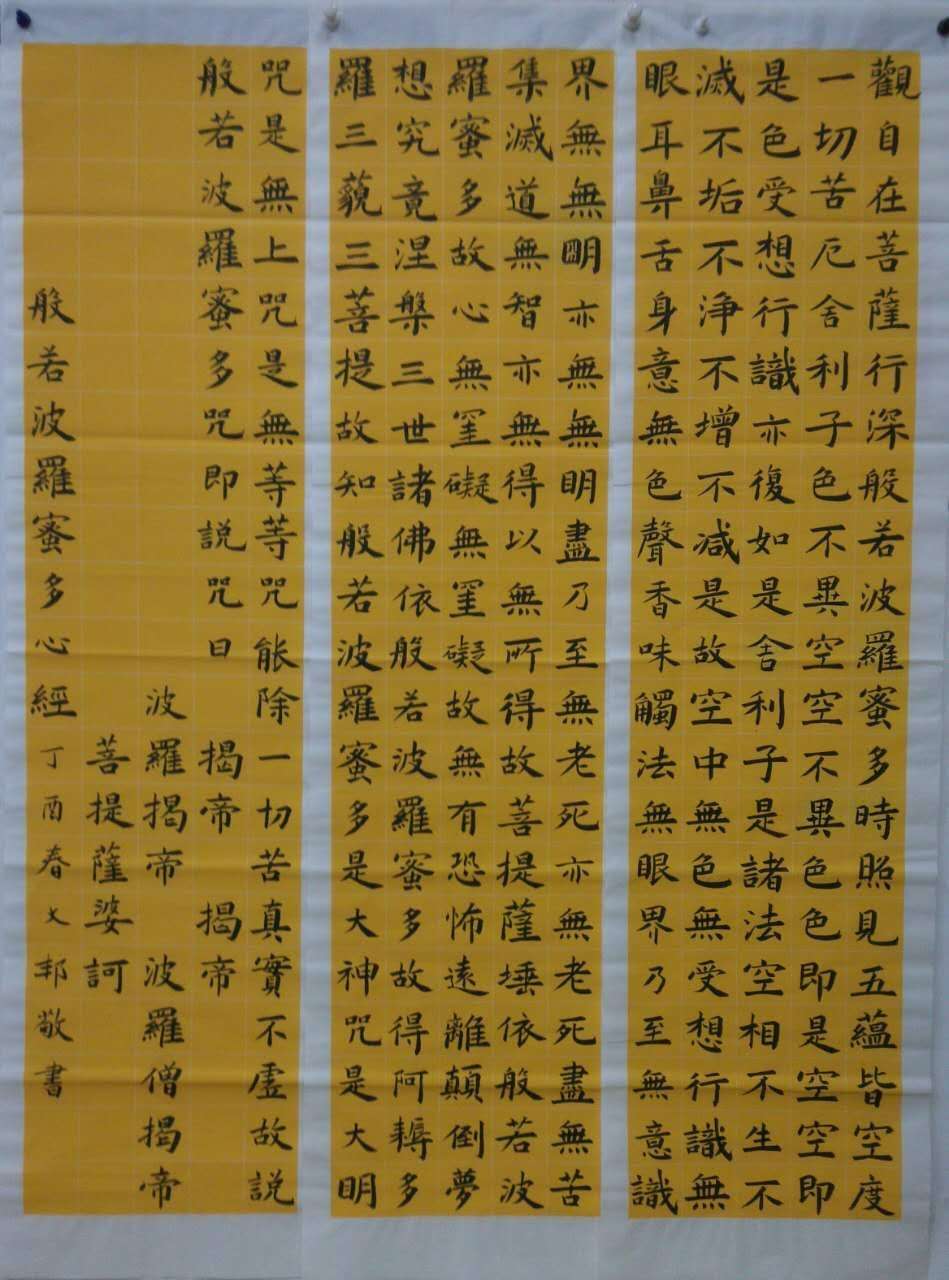 觀自在菩薩行深般若波羅蜜多時照見五蘊皆空度
一切苦厄舍利子色不異空空不異色色即是空空即
是色受想行識亦復如是舍利子是諸法空相不生不
滅不垢不淨不增不減是故空中無色無受想行識無
眼耳鼻舌身意無色聲香味觸法無眼界乃至無意識
界無無明亦無無明盡乃至無老死亦無老死盡無苦
集滅道無智亦無得以無所得故菩提薩埵依般若波
羅蜜多故心無罣礙無罣礙故無有恐怖遠離顛倒夢
想究竟涅槃三世諸佛依般若波羅蜜多故得阿耨多
羅三藐三菩提故知般若波羅蜜多是大神咒是大明
咒是無上咒是無等等咒能除一切苦真實不虛故説
般若波羅蜜多咒即説咒曰 揭帝 揭帝
波羅揭帝 波羅僧揭帝
菩提薩婆訶
般若波羅蜜多心經 丁酉春文邦敬書